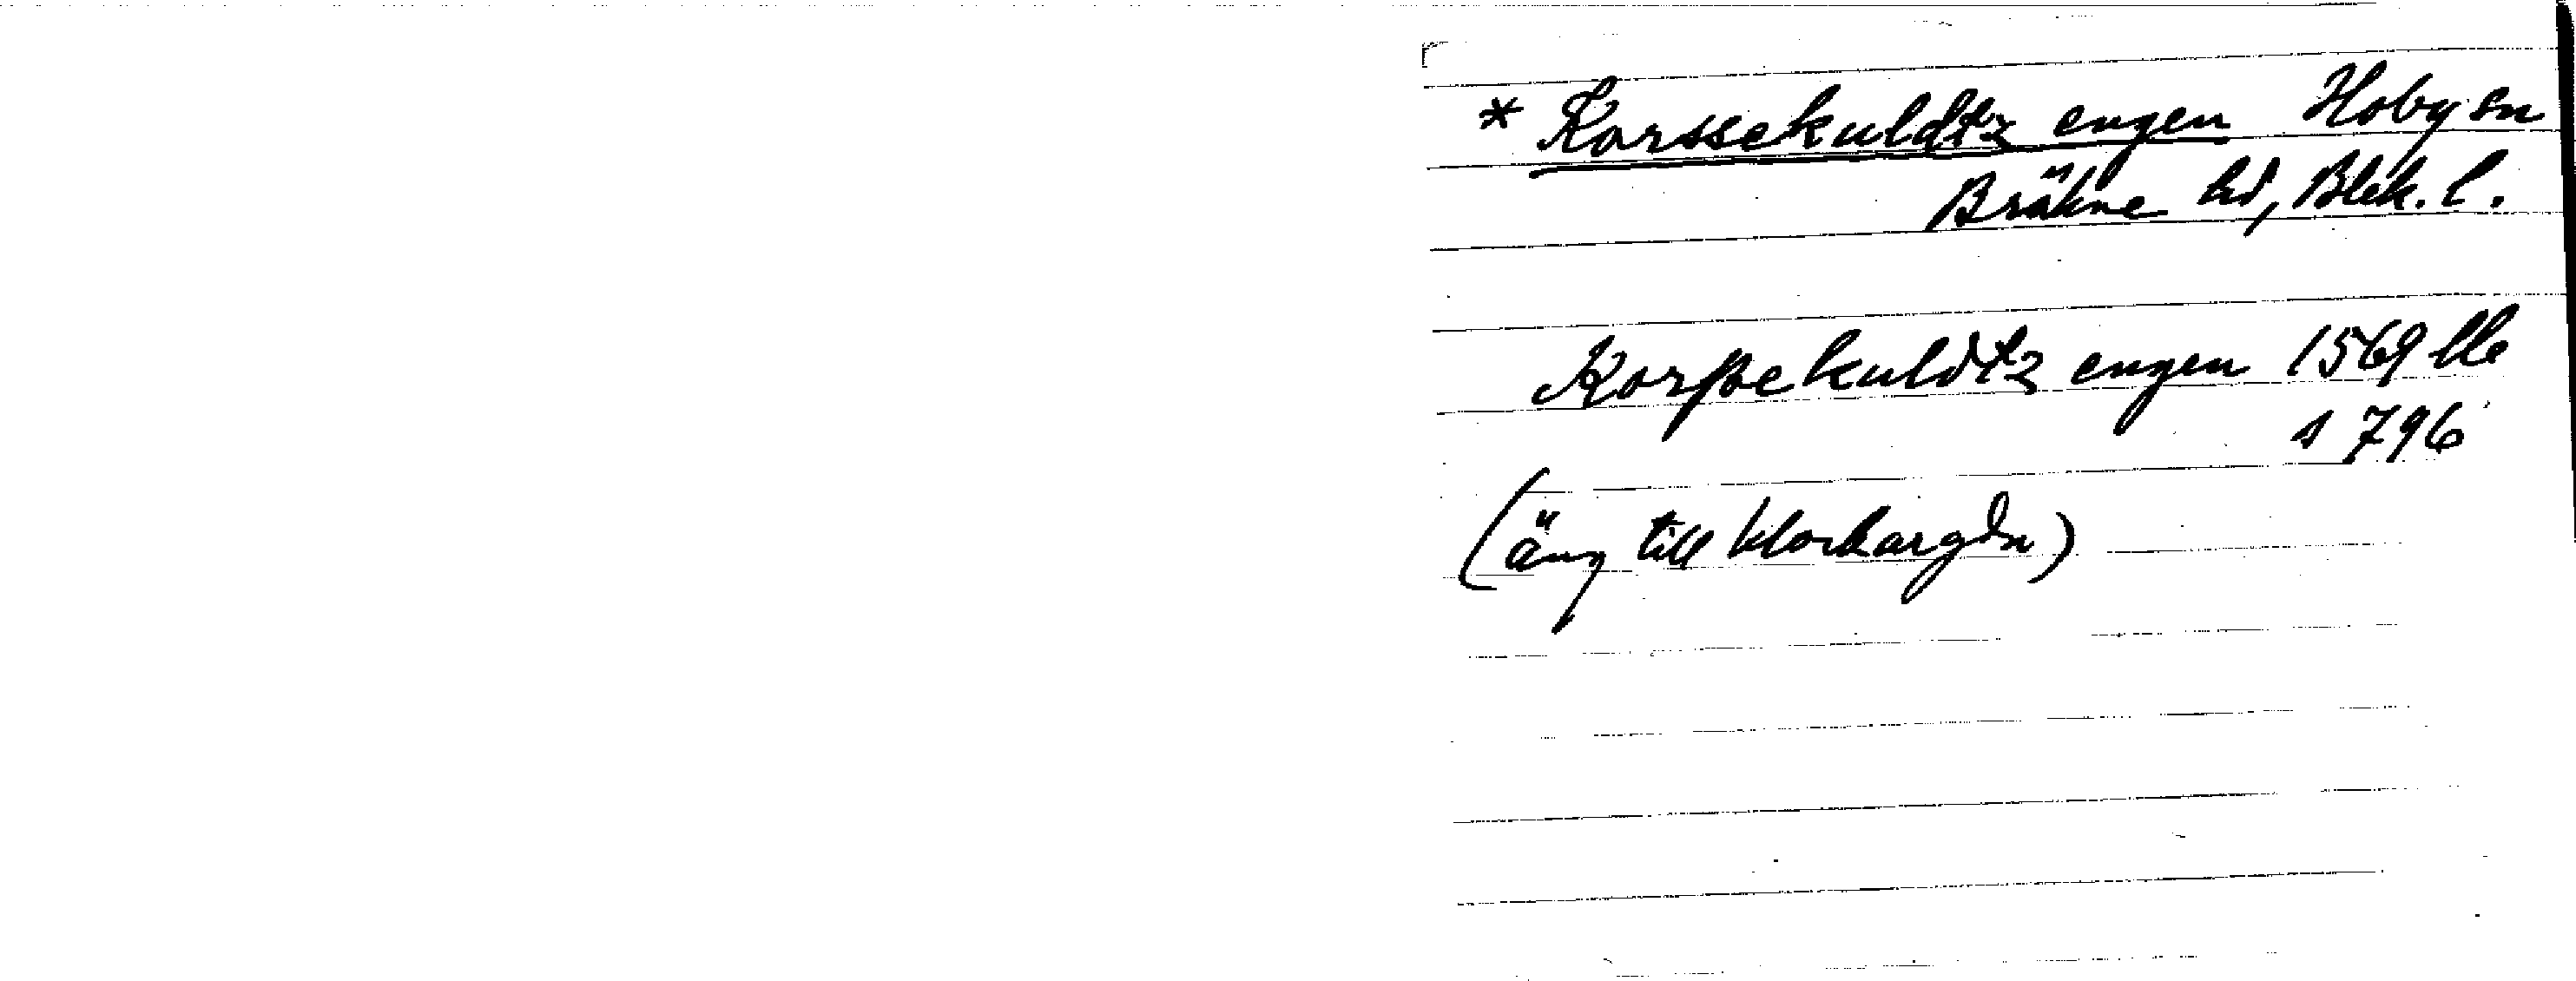 * Korssekuldtz engen Hoby sn
Bräkne hd, Blek. l.
Korßekuldtz engen 1569 lle
s 796
(äng till klockargdn)